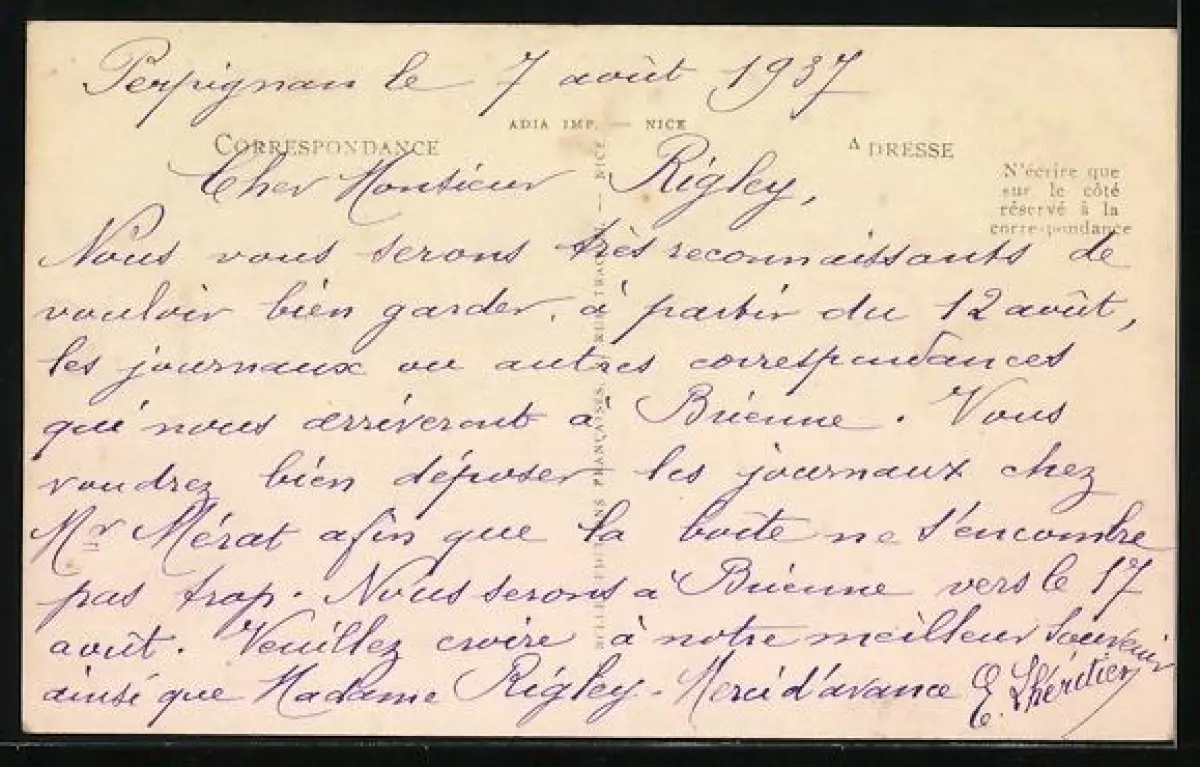 Perpignan le 7 août 1937
ADIA IMP. — NICE
CORRESPONDANCE
ADRESSE
N'écrire que
sur le côté
réservé à la
correspondance
Cher Monsieur Rigley,
Nous vous serons très reconnaissants de
vouloir bien garder, à partir du 12 août,
les journaux ou autres correspondances
qui nous arriveront à Brienne. Vous
voudrez bien déposer les journaux chez
Mr Mérat afin que la boîte ne s'encombre
pas trop. Nous serons à Brienne vers le 17
août. Veuillez croire à notre meilleur souvenir
ainsi que Madame Rigley. Merci d'avance E. Lhéritier
ÉDITIONS FRANÇAISES, RUE — NICE